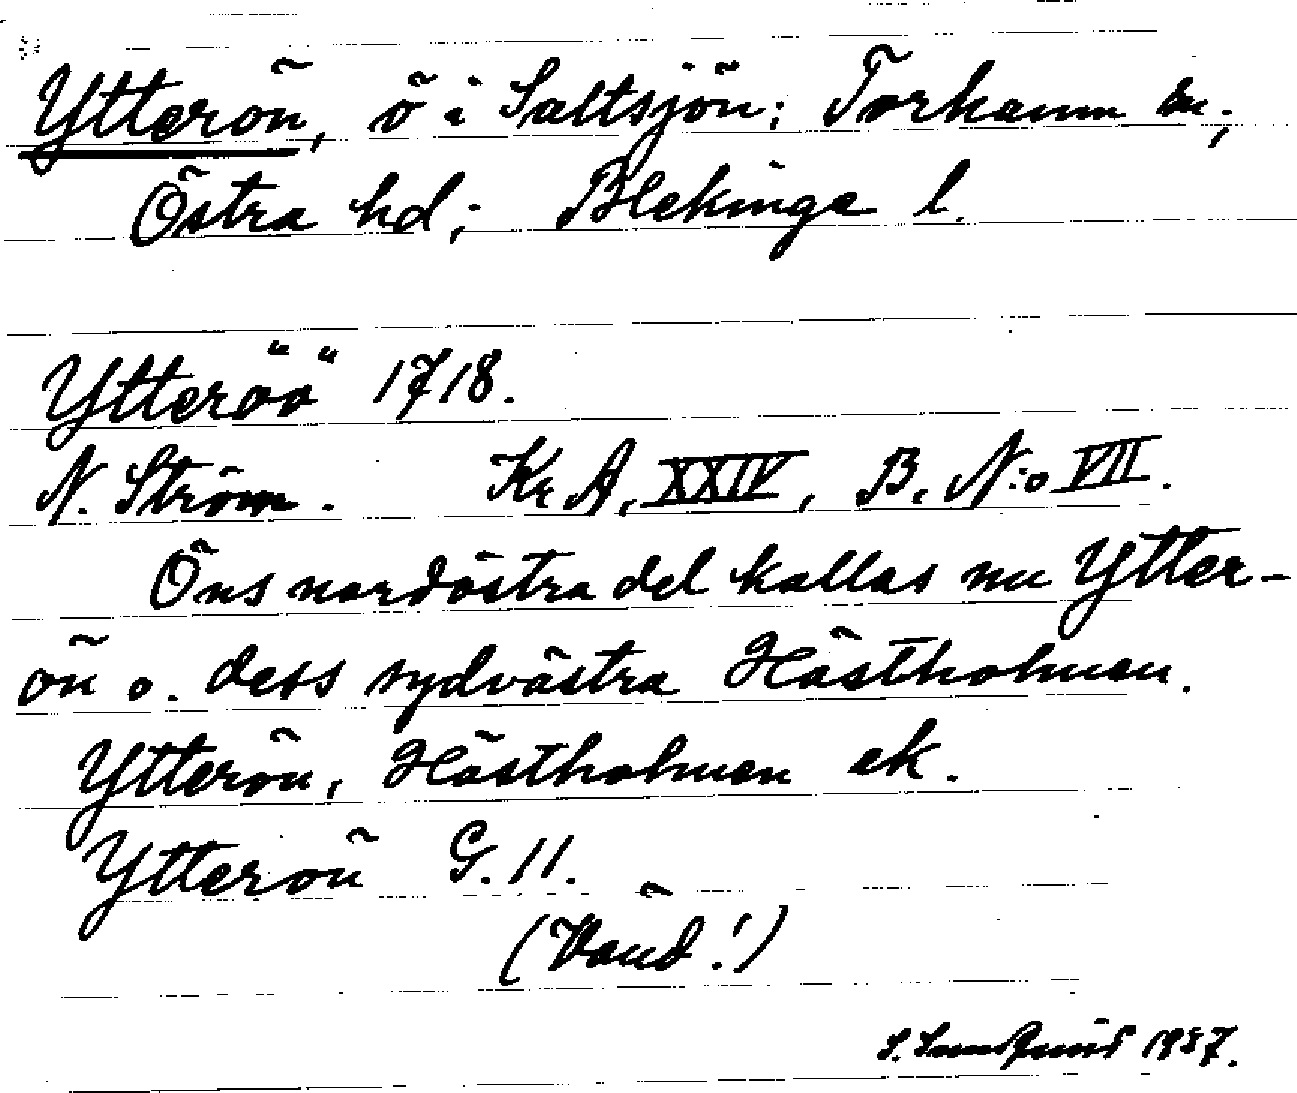 Ytterön, ö i Saltsjön; Torhamn sn;
Östra hd; Blekinge l.
Ytteröö 1718.
N. Ström. Kr A, XXIV, B, N:o VII.
Öns nordöstra del kallas nu Ytter-
ön o. dess sydvästra Hästholmen.
Ytterön, Hästholmen ek.
Ytterön G. 11.
(Vänd!)
1937.